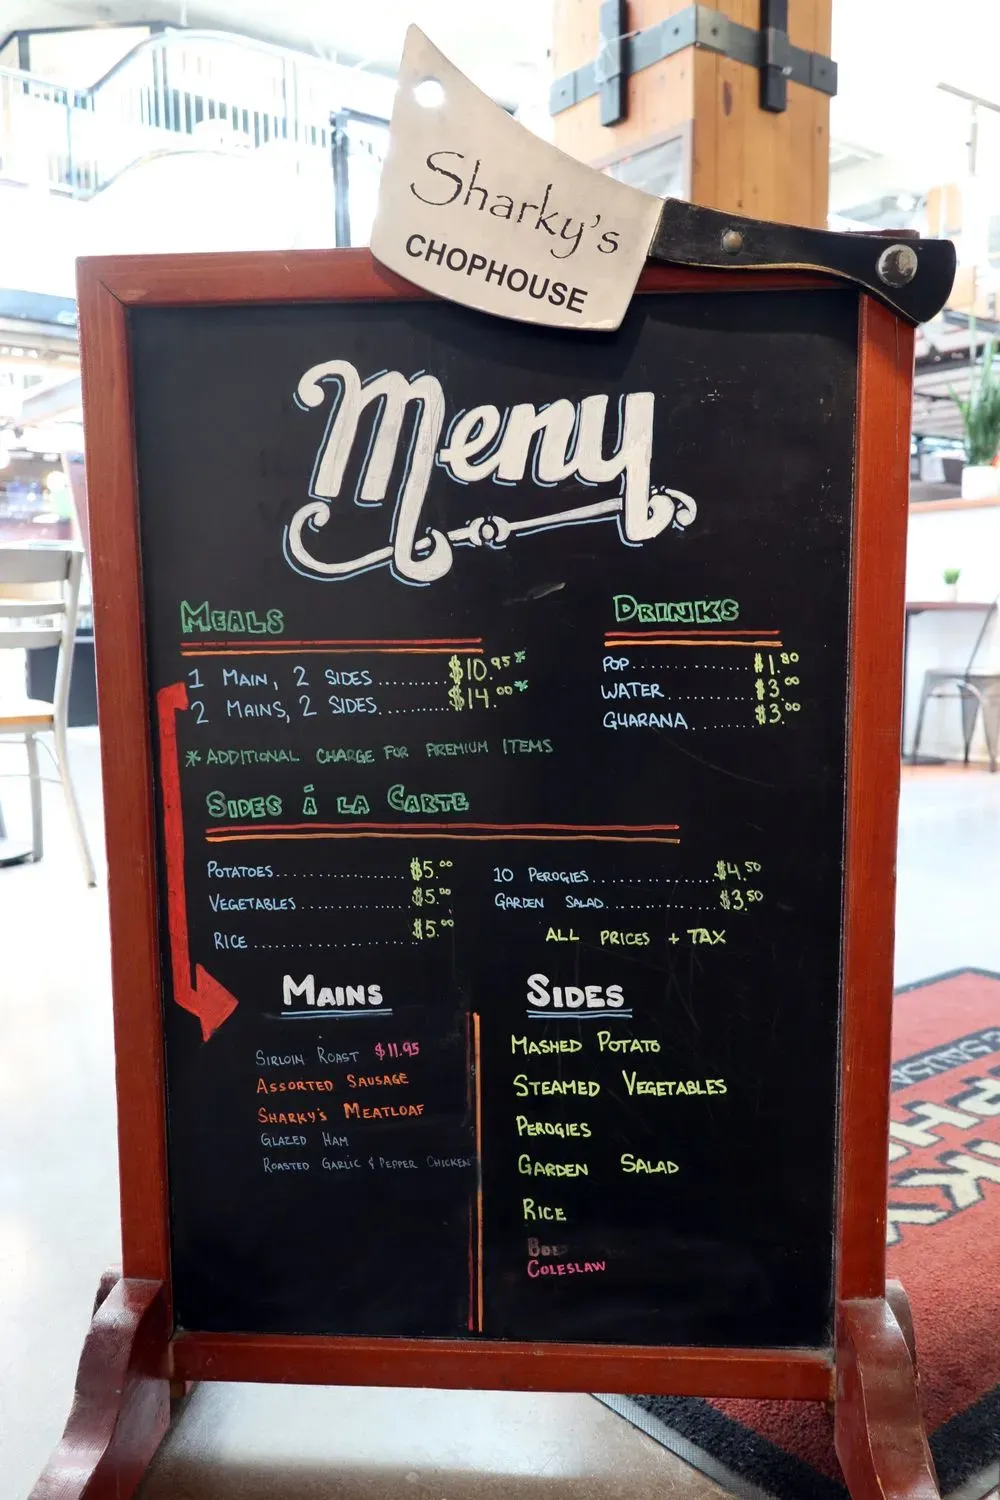 Sharky's
CHOPHOUSE
Menu
MEALS
1 MAIN, 2 SIDES.........$10.95*
2 MAINS, 2 SIDES.........$14.00*
*ADDITIONAL CHARGE FOR PREMIUM ITEMS
DRINKS
POP............$1.80
WATER..........$3.00
GUARANA.......$3.00
SIDES Á LA CARTE
POTATOES..............$5.00
VEGETABLES............$5.00
RICE..................$5.00
10 PEROGIES..............$4.50
GARDEN SALAD.............$3.50
ALL PRICES + TAX
MAINS
SIRLOIN ROAST $11.95
ASSORTED SAUSAGE
SHARKY'S MEATLOAF
GLAZED HAM
ROASTED GARLIC & PEPPER CHICKEN
SIDES
MASHED POTATO
STEAMED VEGETABLES
PEROGIES
GARDEN SALAD
RICE
COLESLAW